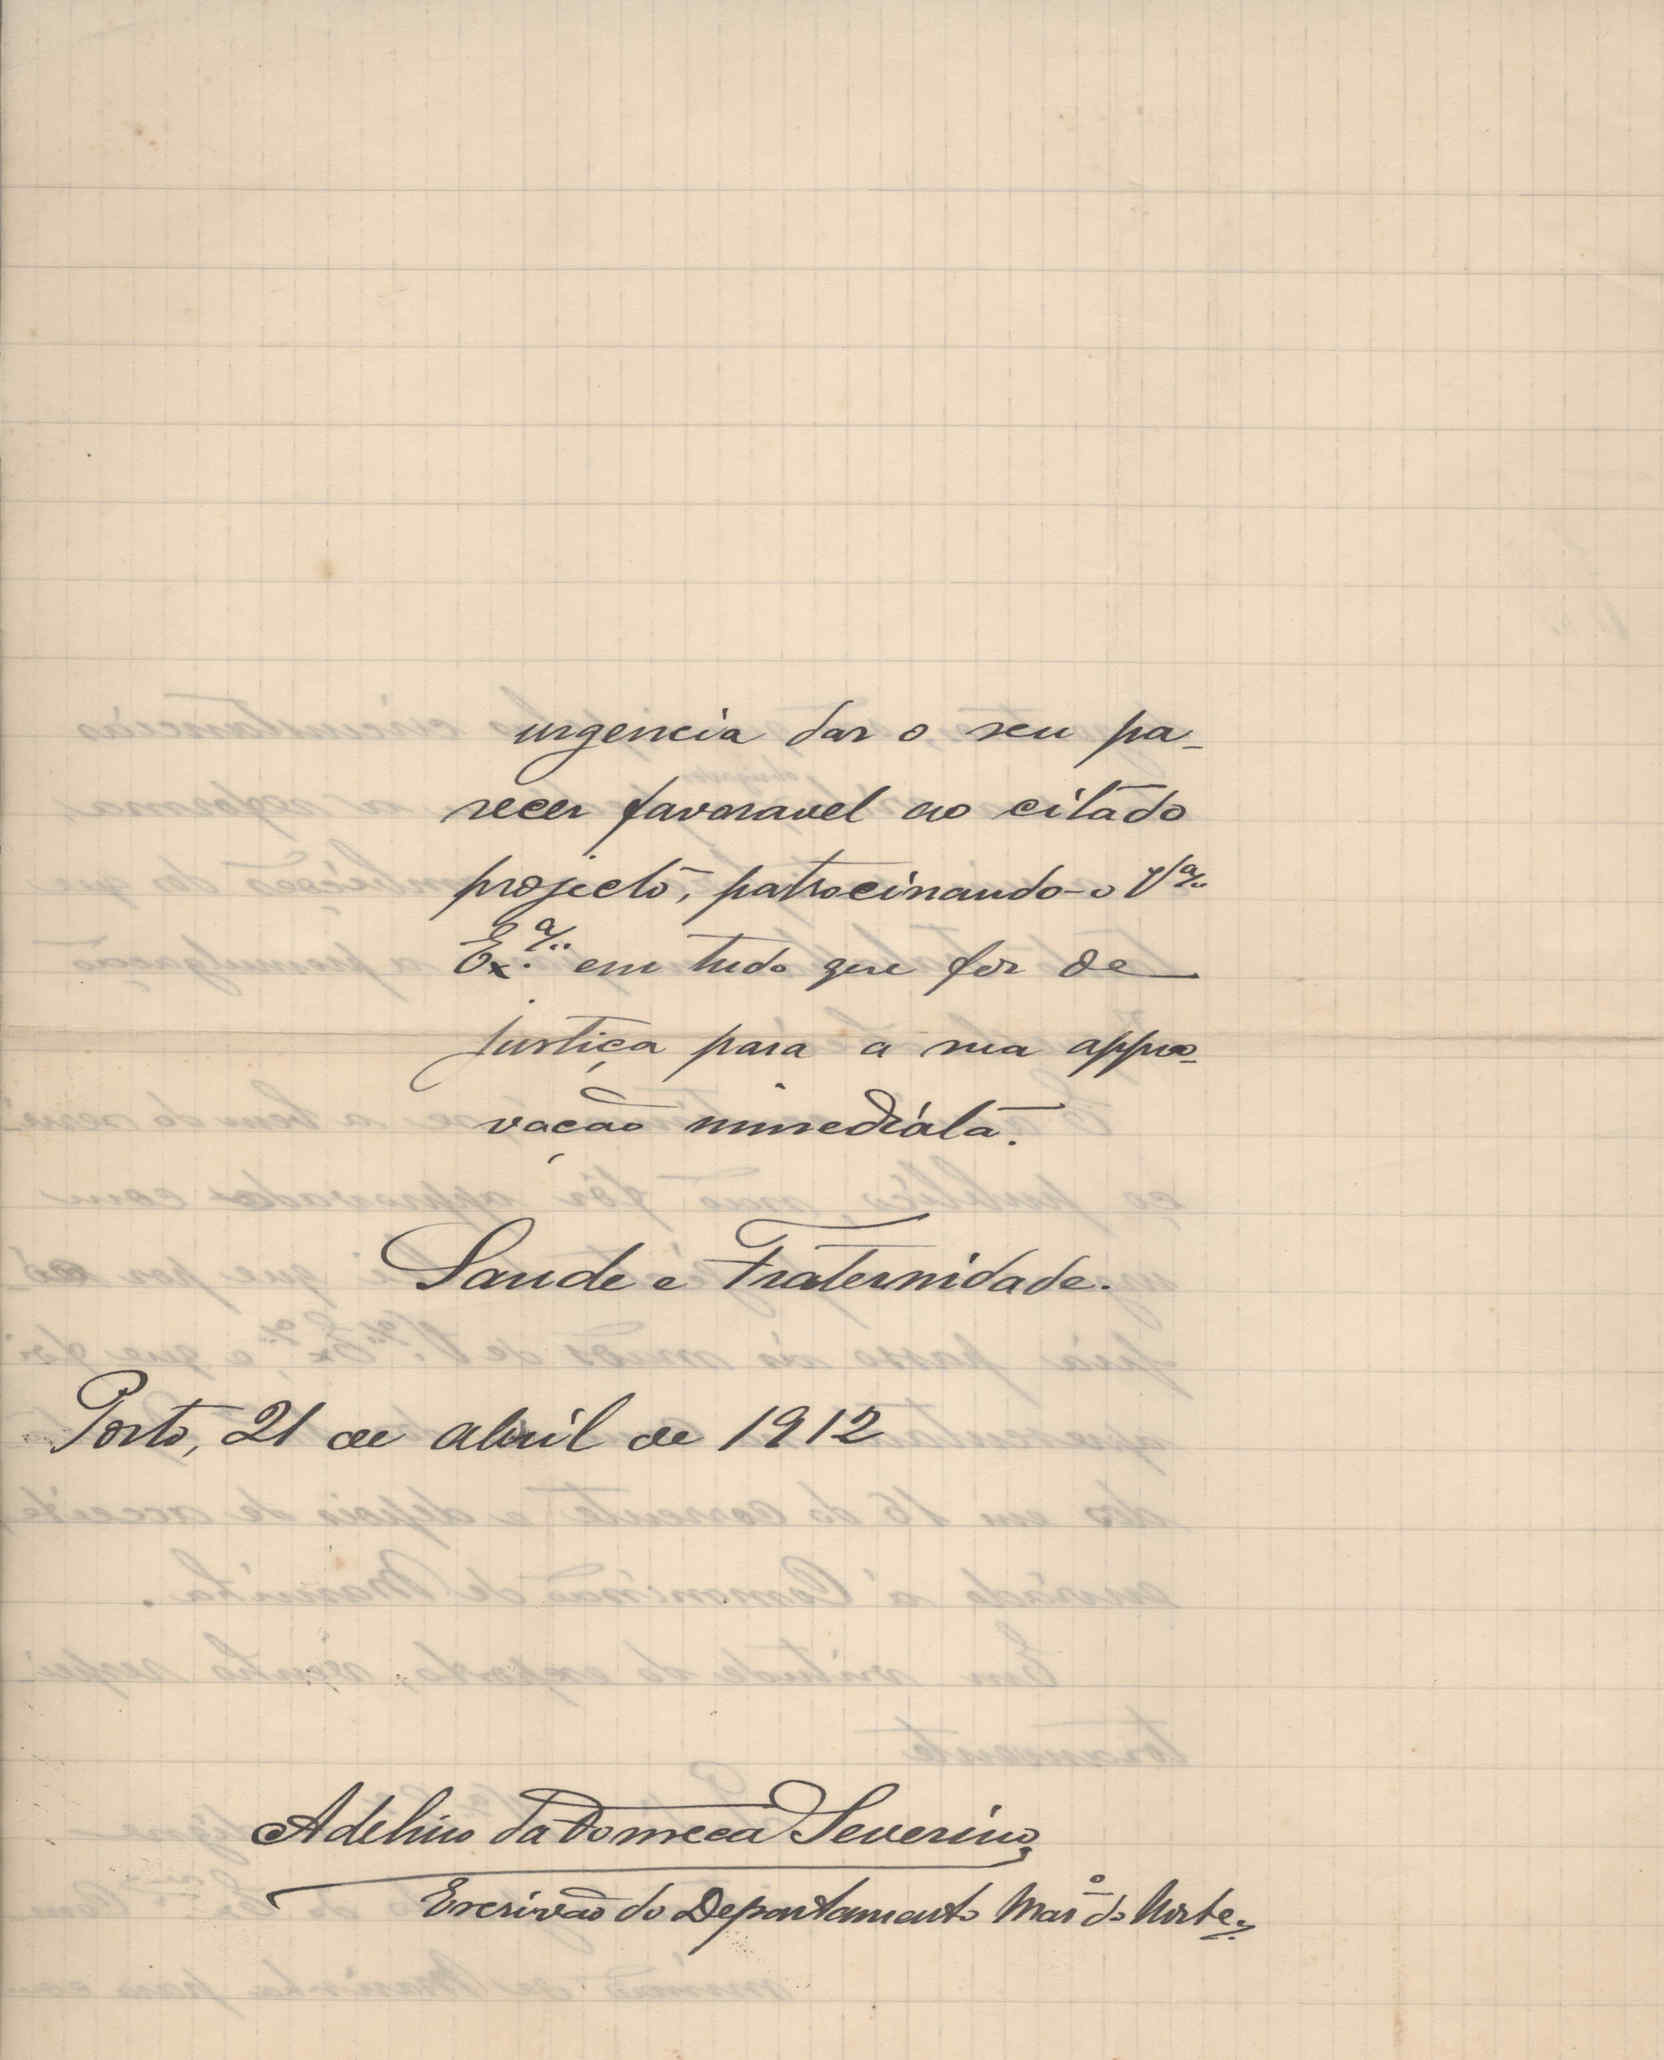 urgencia dar o seu pa-
recer favoravel ao citado
projecto, patrocinando-o V.ª
Ex.ª em tudo que for de
justiça para a sua appro-
vação immediata.
Saude e Fraternidade.
Porto, 21 de abril de 1912
Adelino da Fonseca Severino,
Escrivão do Departamento Mar.º do Norte,